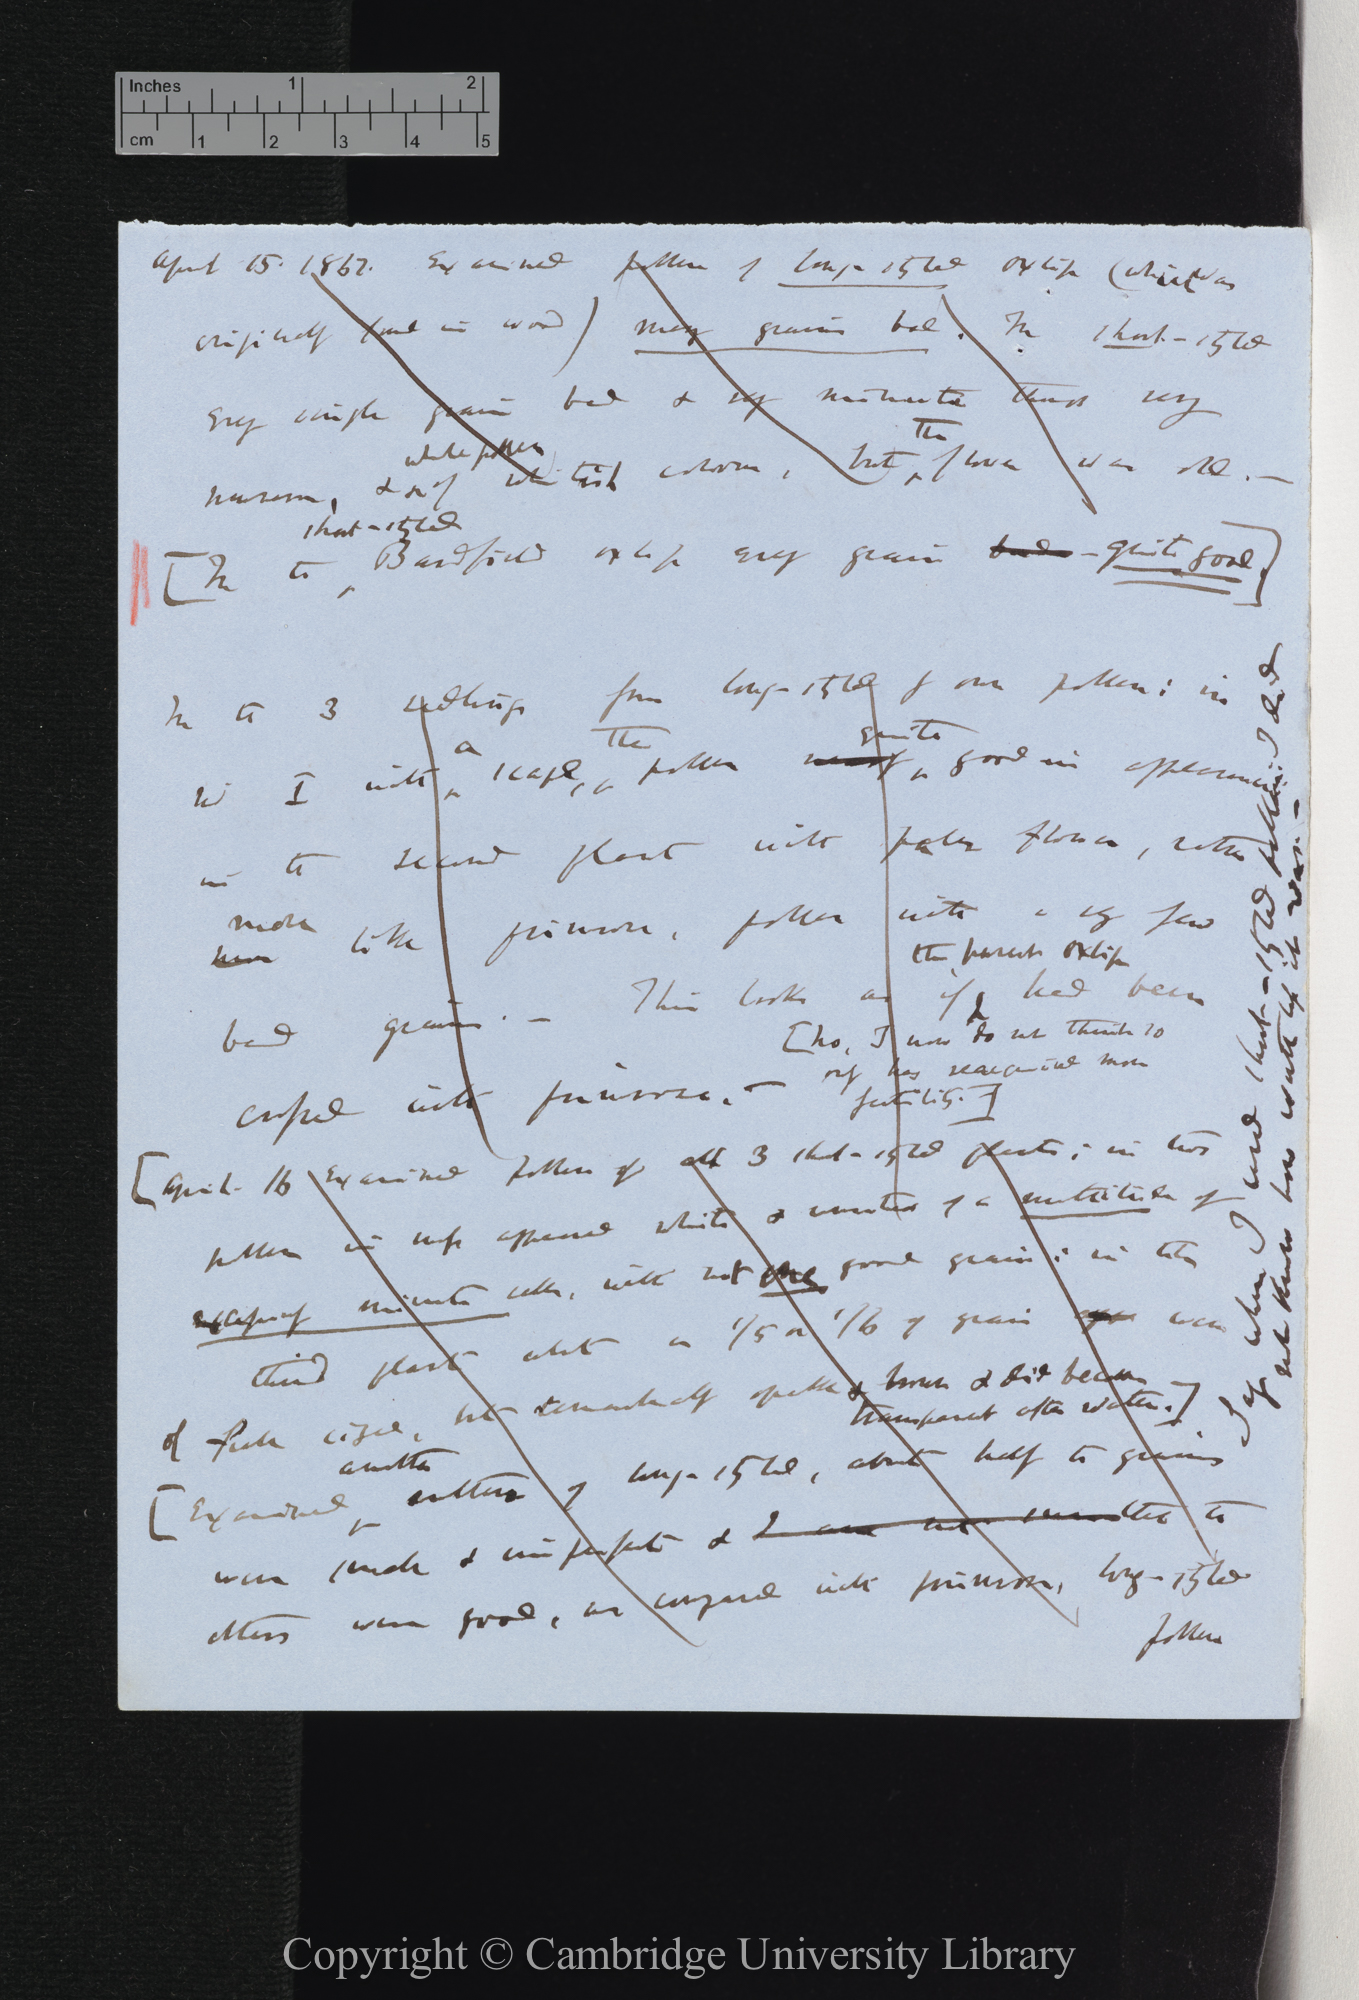 Inches 1 2
cm 1 2 3 4 5
April 15. 1862. Examined pollen of long-styled oxlip (which was
originally found in wood) many grains bad. In short-styled
every single grain bad & very minute things very
white pollen the
numerous, & of whitish colour, but flower was old. —
short-styled
[In the Bardfield oxlip every grain bad – quite good.]
In the 3 seedlings from long-styled of own pollen: in
a the quite
No I with scape, pollen good in appearance:
in the second plant with paler flower, rather
more
like primrose, pollen with a very few
the parent oxlip
bad grains. — This looks as if had been
[No, I now do not think so
crossed with primrose. —
only has reacquired more
fertility.]
[April 16 Examined pollen of all 3 short-styled plants; in two
pollen in appeared white & consisted of a multitude of
excessively minute cells, with not one good grain: in the
third plant about 1/5 or 1/6 of grain were
of full size, but remarkably opake & brown & did become
transparent after water.]
another
[Examined of long-styled, about half the grains
were small & imperfect & I am not the
others were good, as compared with primrose, long-styled
pollen
I say when I used short-styled pollen: I did
not know how worthless it was. —
Copyright © Cambridge University Library